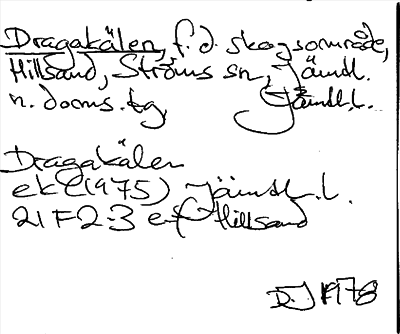 Dragakälen, f.d. skogsområde,
Hillsand, Ströms sn, Jämtl.
n. doms. tg, Jämtl.l.
Dragakälen
ek (1975) Jämtl.l.
21F2-3 e-f Hillsand
DJ 1978